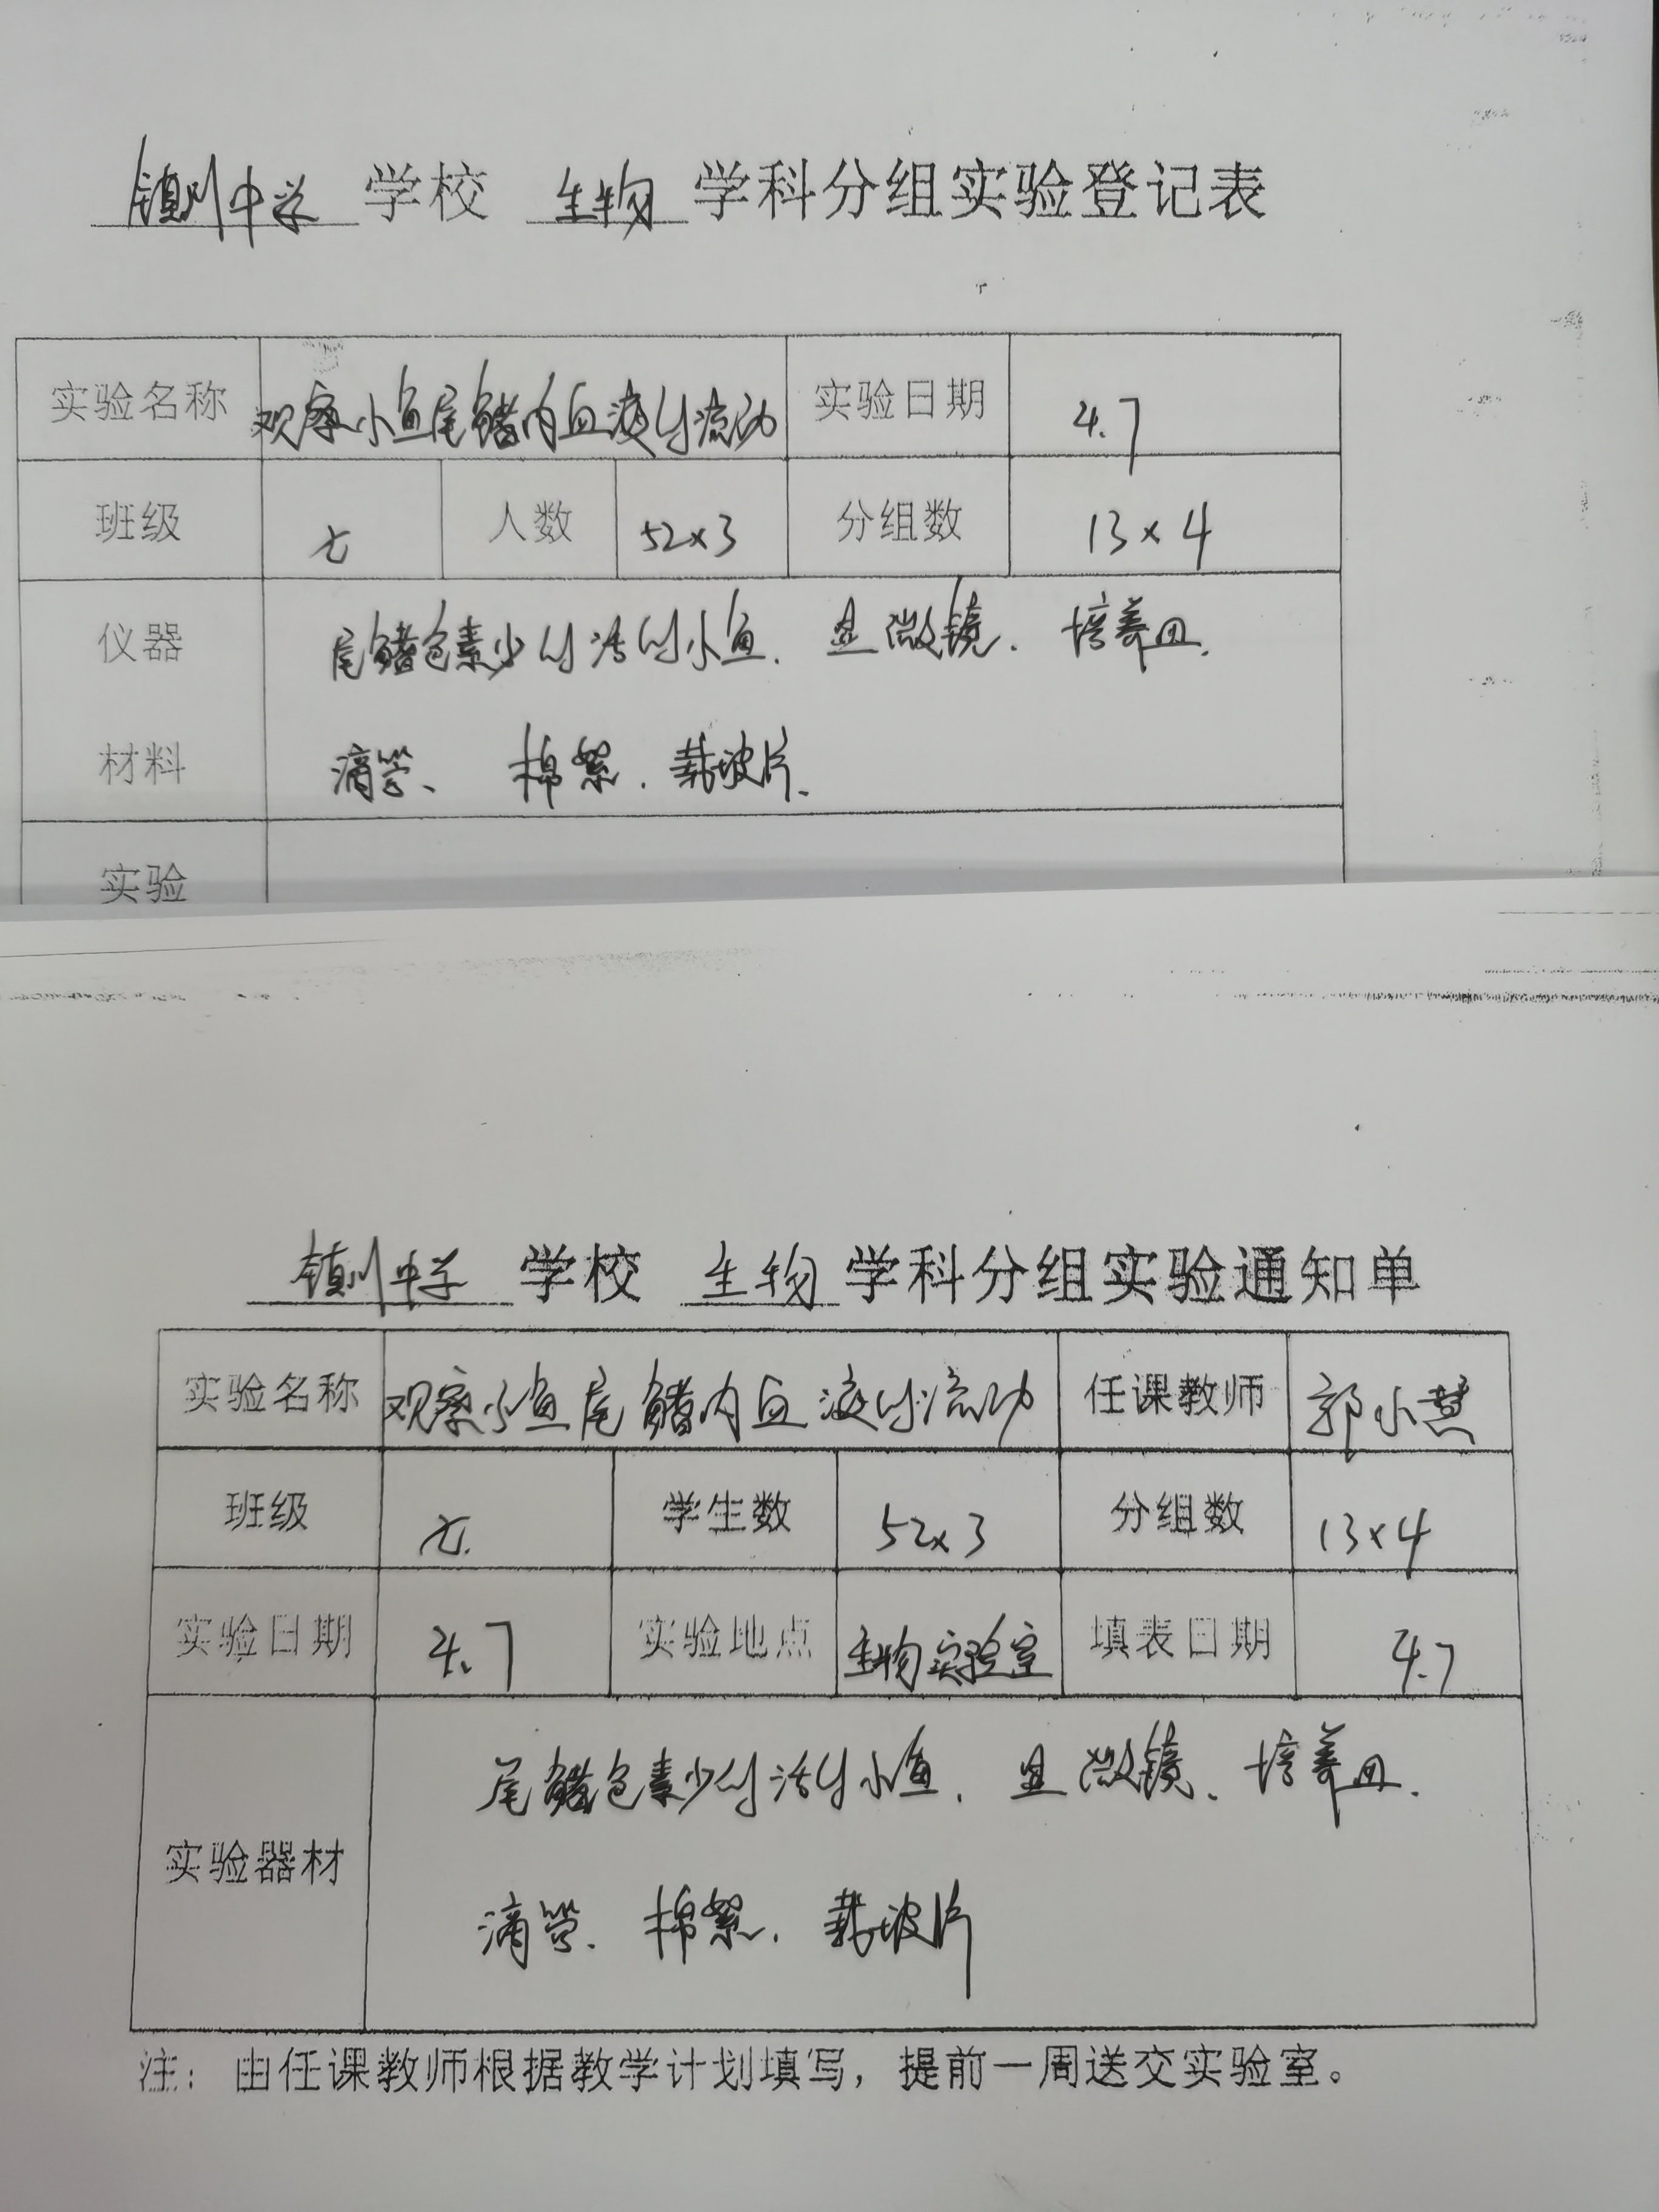 镇川中学 学校 生物 学科分组实验登记表
实验名称 观察小鱼尾鳍内血液的流动 实验日期 4.7
班级 七 人数 52×3 分组数 13×4
仪器 尾鳍色素少的活的小鱼. 显微镜. 培养皿.
材料 滴管、 棉絮. 载玻片.
实验
镇川中学 学校 生物 学科分组实验通知单
实验名称 观察小鱼尾鳍内血液的流动 任课教师 郭小慧
班级 七. 学生数 52×3 分组数 13×4
实验日期 4.7 实验地点 生物实验室 填表日期 4.7
尾鳍色素少的活的小鱼. 显微镜、培养皿.
实验器材
滴管. 棉絮. 载玻片
注：由任课教师根据教学计划填写，提前一周送交实验室。